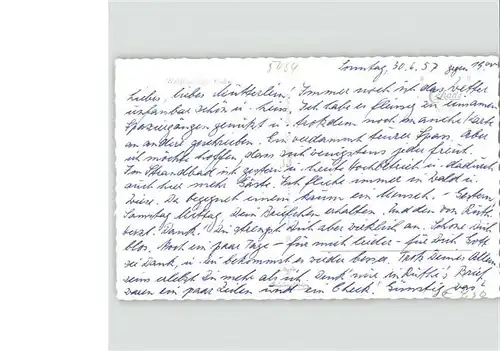 Sonntag, 30.6.57 gegen 19.00
Liebes, liebes Mütterlein! Immer noch ist das Wetter
unfassbar schön u. heiss. Ich habe es fleissig zu einsamen
Spaziergängen genützt u. trotzdem noch manche Karte
an andere geschrieben. Ein verdammt teurer Spass. Aber
ich möchte hoffen, dass sich wenigstens jeder freut.
Im Strandbad ist gestern u. heute Hochbetrieb u. dadurch
auch hier mehr Gäste. Ich fliehe immer in Wald u.
Wiese. Da begegnet einem kaum ein Mensch. - Gestern,
Samstag Mittag, Dein Briefchen erhalten. Und den von Ruth
Dank! Du strengst Dich aber wirklich an. Schone Dich
bloss. Noch ein paar Tage - für mich leider - für Dich Gott
sei Dank, u. Du bekommst es wieder besser. Trotz Deines Alleinseins
erlebst Du mehr als ich. Denk mir in Ruthi's Brief
waren ein paar Zeilen und ein Check! Günstig was!